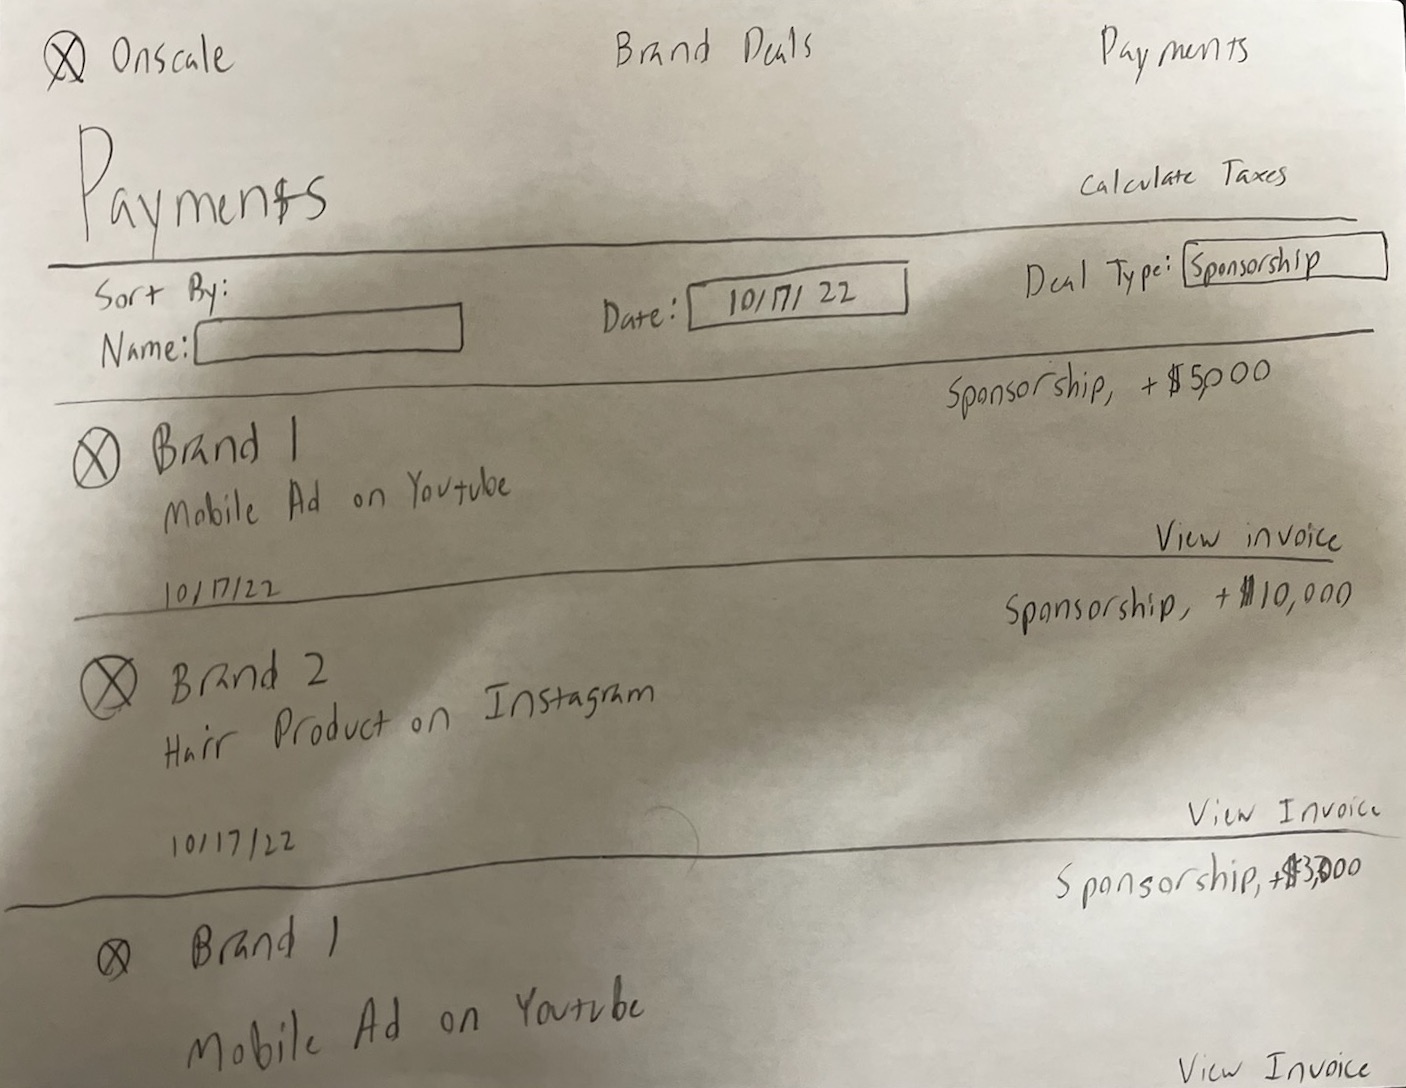 Onscale Brand Deals Payments
Payments
Calculate Taxes
Sort By:
Name: Date: 10/17/22 Deal Type: Sponsorship
Sponsorship, +$5,000
Brand 1
Mobile Ad on Youtube
View invoice
10/17/22
Sponsorship, +$10,000
Brand 2
Hair Product on Instagram
View Invoice
10/17/22
Sponsorship, +$3,000
Brand 1
Mobile Ad on Youtube
View Invoice